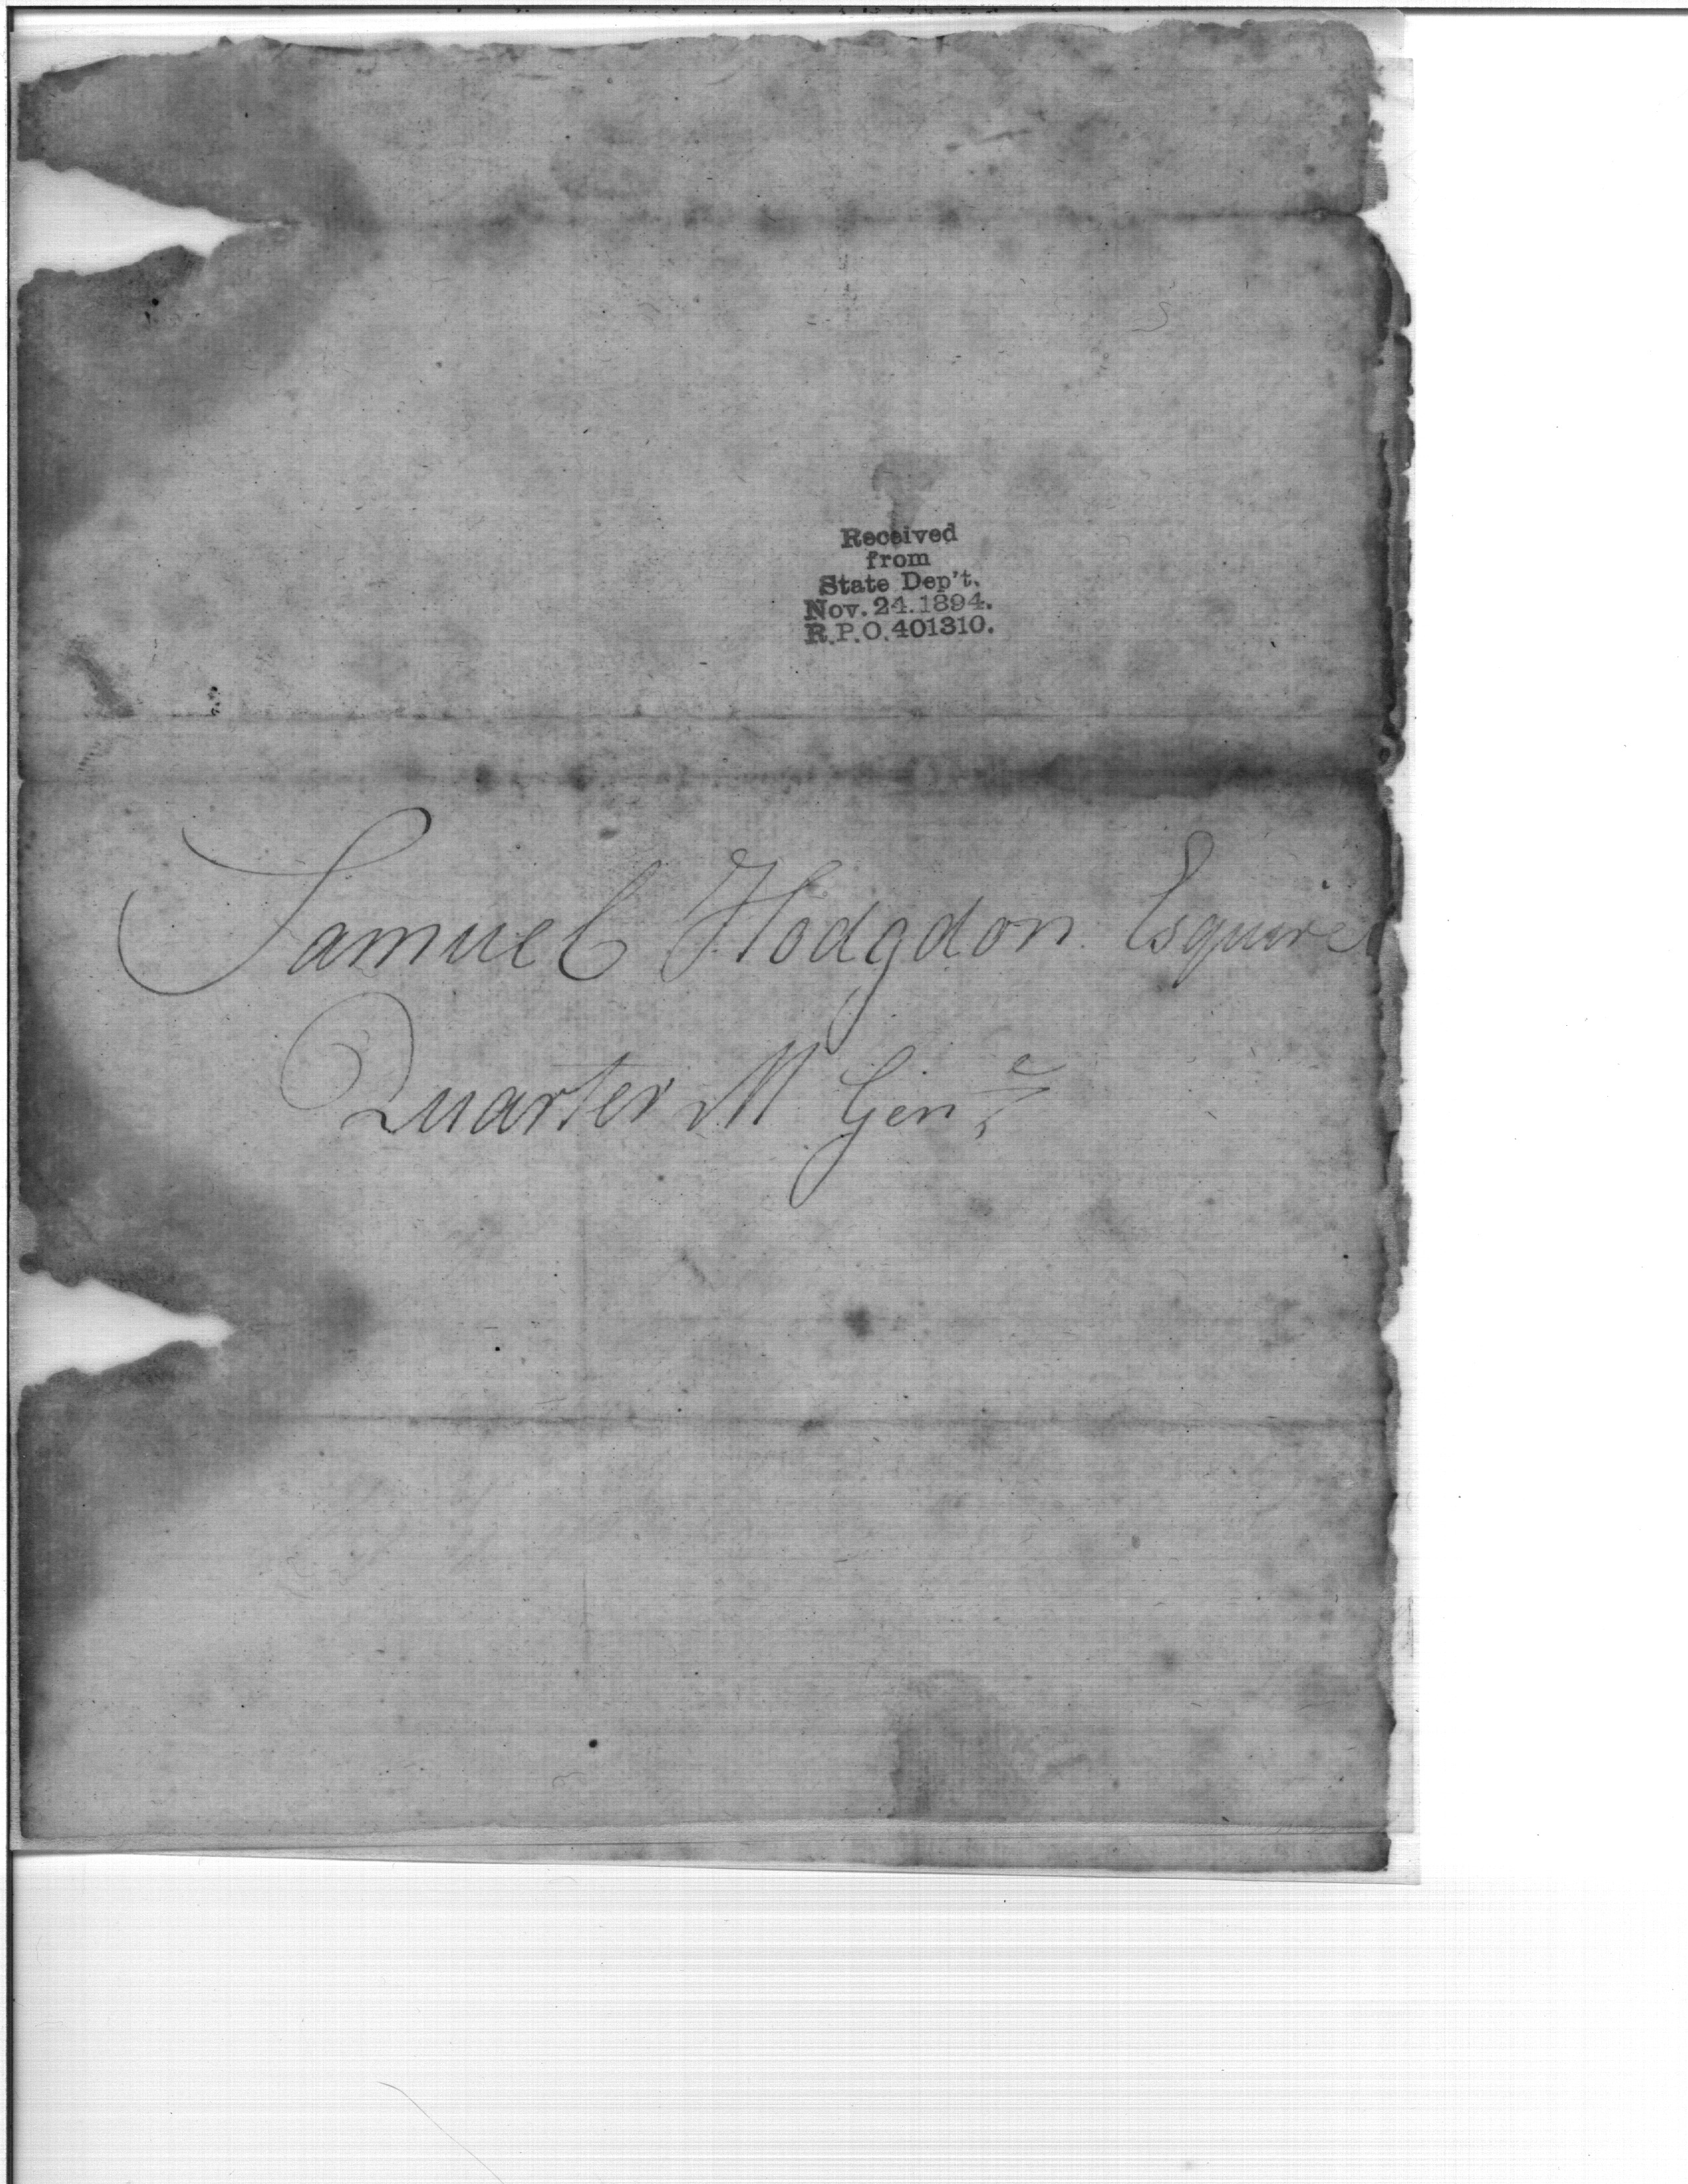 Received
from
State Dep't.
Nov. 24. 1894.
R.P.O. 401310.
Samuel Hodgdon Esquire
Quarter M Genl